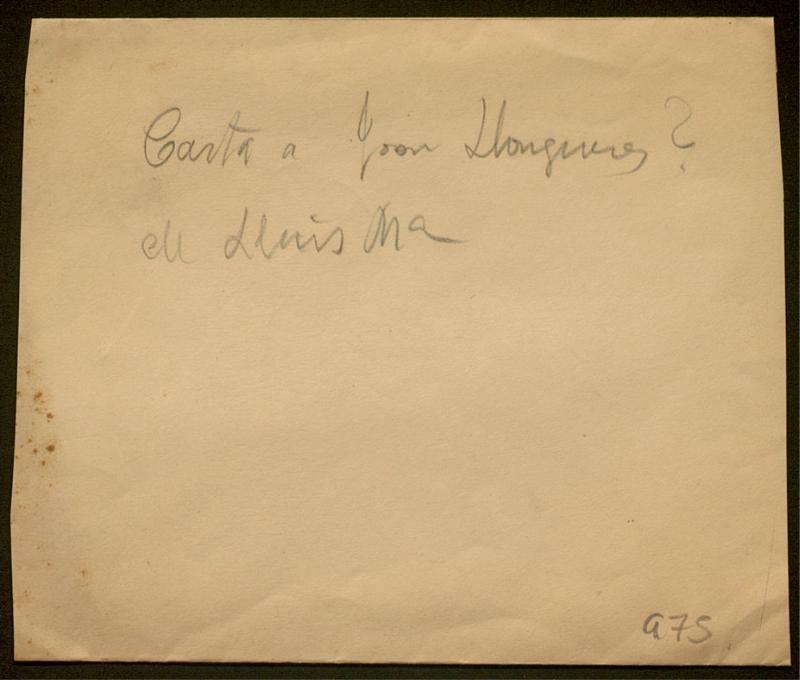 Carta a Joan Llongueres?
de Lluis Ma
975